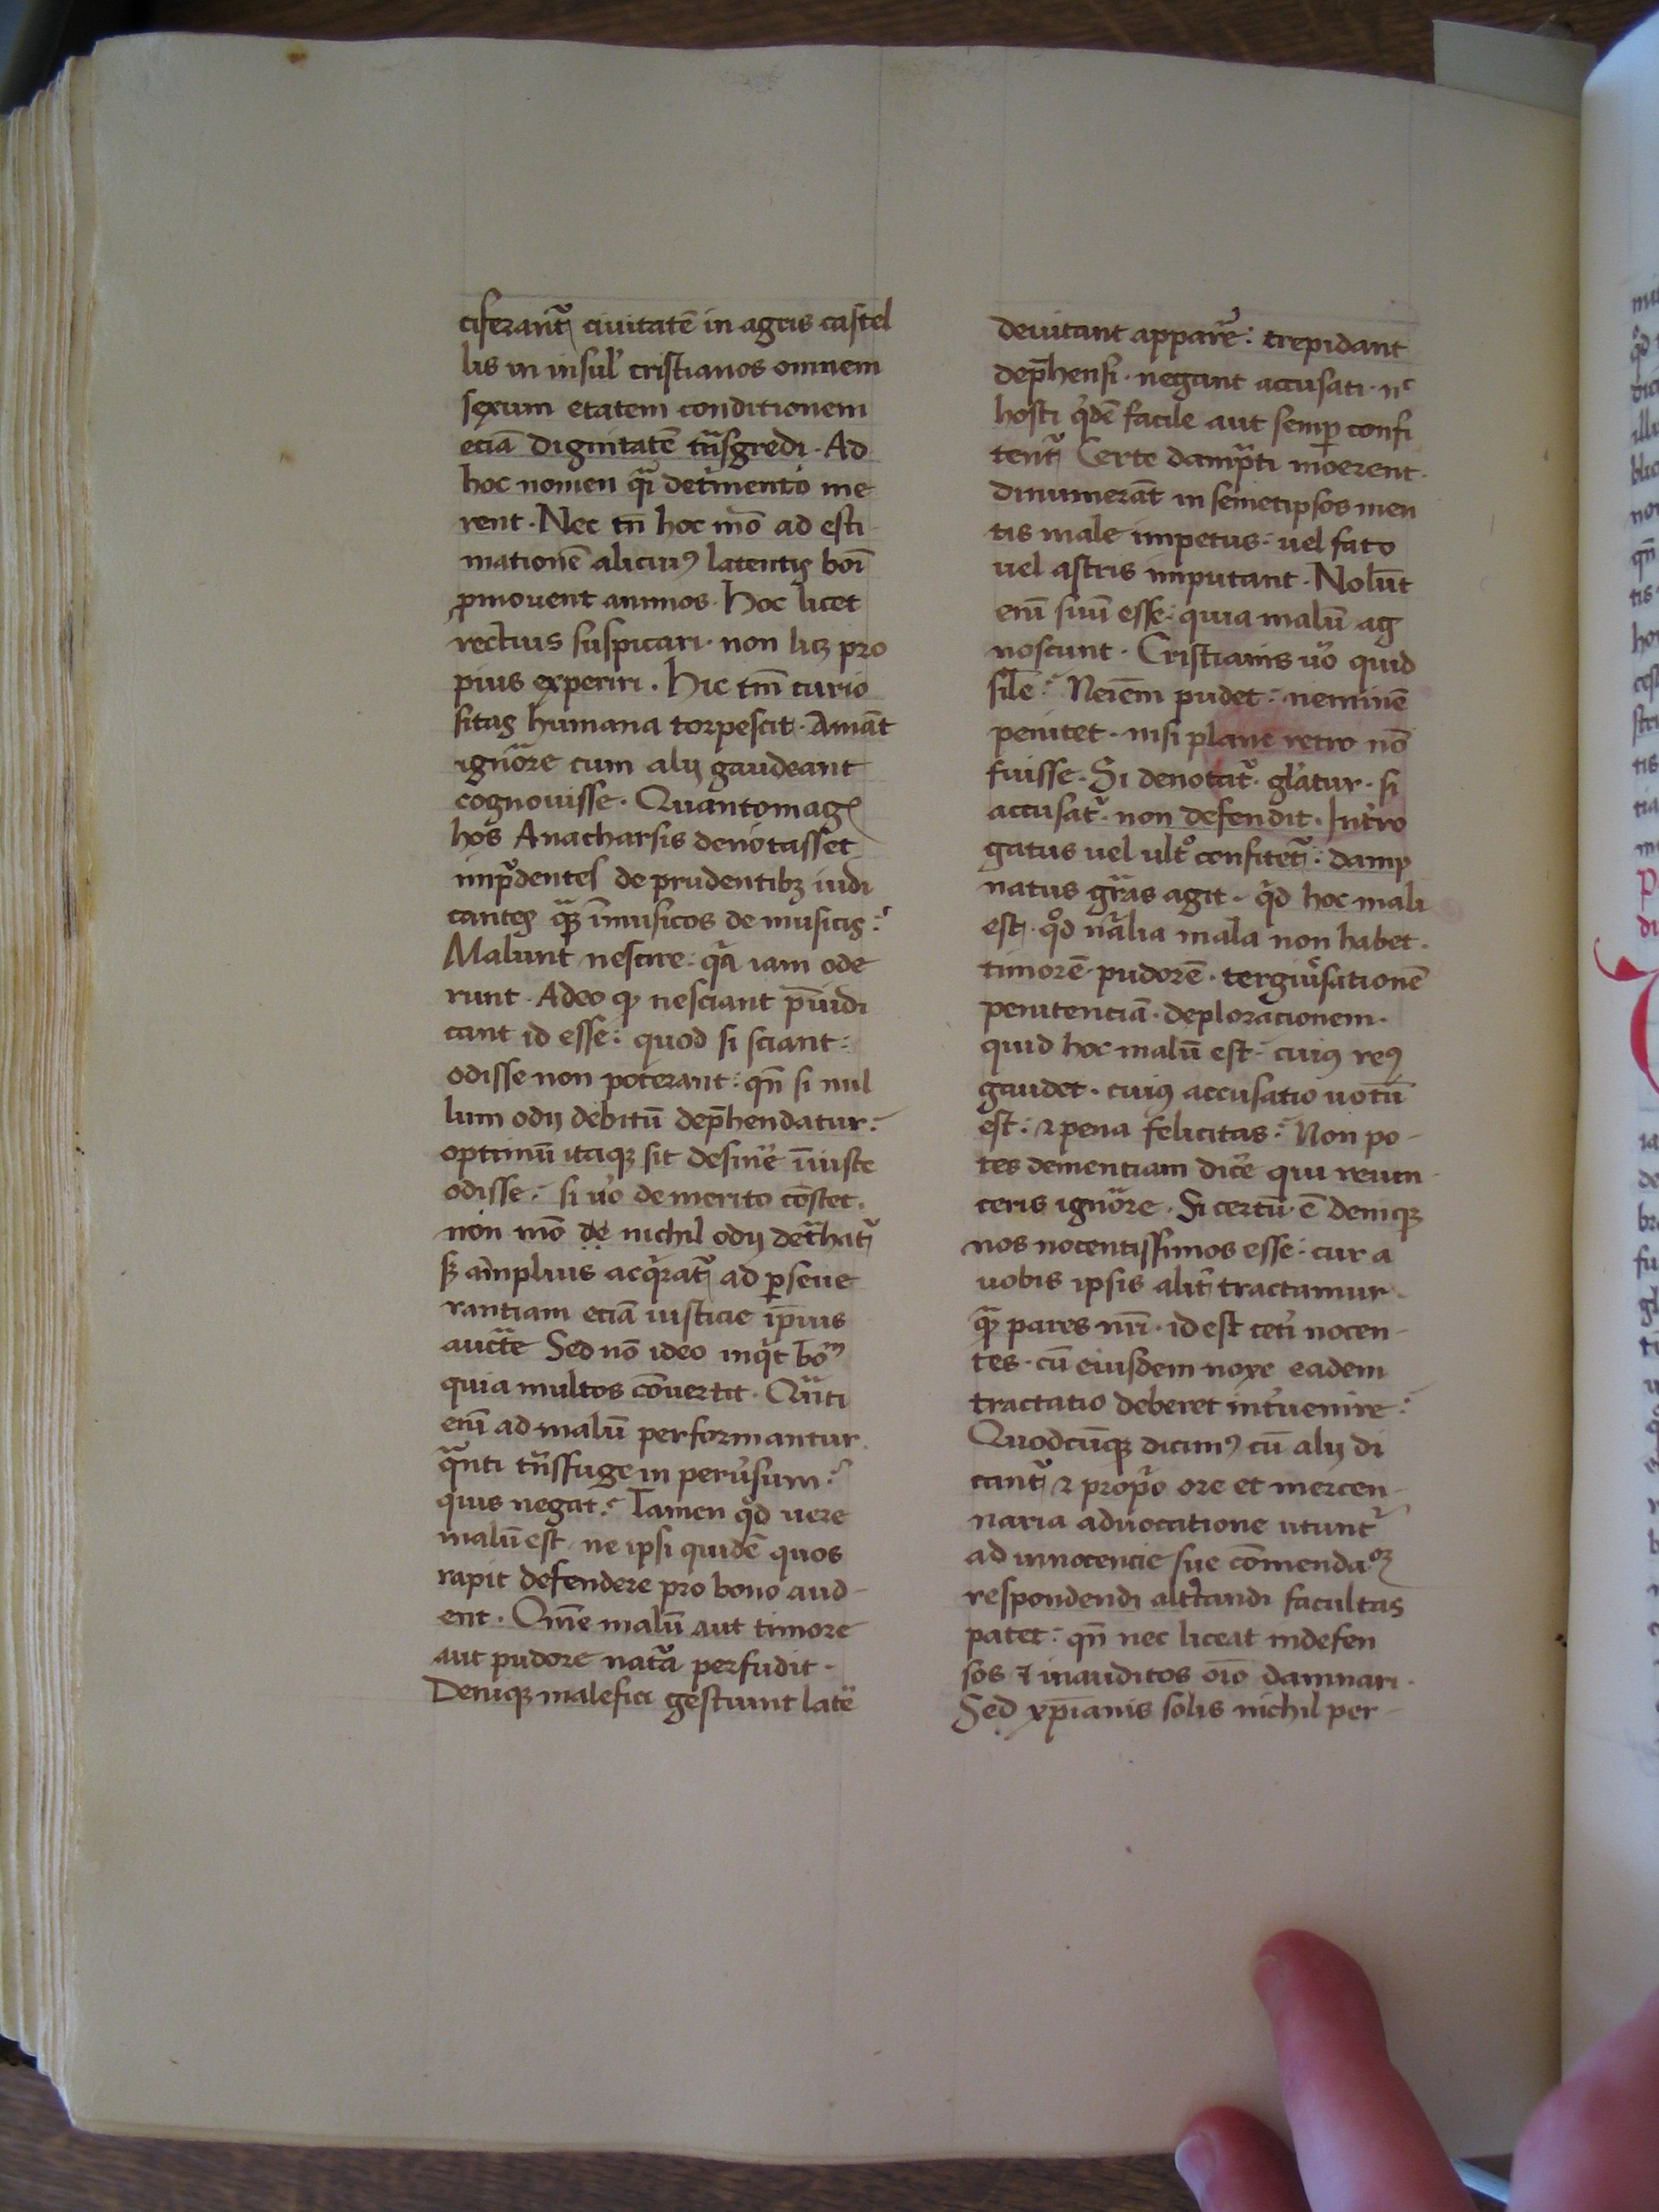 ciferant᷑ ciuitatē in agris castel
lis in insul' cristianos omnem
sexum etatem conditionem
eciā dignitatē tn̄sgredi · Ad
hoc nomen qͣi det'mento me
rent · Nec tn̄ hoc mō ad esti
mationē alicui⁹ latentis boī
ꝓmouent animos · Hoc licet
rectius suspicari · non lic₃ pro
pius experiri · Hic tm̄ curio
sitas humana torpescit · Amāt
ignͦare cum alij gaudeant
cognouisse · Quantomag̃
hos Anacharsis denotasset
imp̃dentes de prudentib₃ iudi
cantes qͣꝫ īmusicos de musicis :
Malunt nescire : qͣ iam ode
runt · Adeo qꝫ nesciant p̄iudi
cant id esse : quod si sciant :
odisse non poterant : qn̄ si nul
lum odij debitū dep̄hendatur :
optimū itaqꝫ sit desin'e īiuste
odisse : si u'o de merito cōstet ·
non mō de nichil odij det̃hat᷑
sꝫ amplius acq'rat᷑ ad ꝑseue
rantiam eciā iusticie ip̄ius
auct̃te Sed nō ideo inq't boᵐ
quia multos cōuertit · Qͣnti
enī ad malū performantur
qͣnti tn̄sfuge in peru'sum :
quis negat : Tamen qͦd uere
malū est · ne ipsi quidē quos
rapit defendere pro bono aud-
ent · Om̄e malū aut timore
aut pudore nat̃a perfudit ·
Deniqꝫ malefici gestiunt lat̃e
deuitant appar'e : trepidant
dep̄hensi · negant accusati · nᶜ
hosti q'dē facile aut semꝑ confi
tent᷑ Certe damp̃ti moerent ·
dinumerāt in semetipsos men
tis male impetus · uel fato
uel astris imputant · Nolūt
enī suū esse : quia malū ag
noscunt · Cristianis u'o quid
sil̄e : Neīem pudet : neminē
penitet · nisi plane retro nō
fuisse · Si denotat᷑ · gl'atur · si
accusat᷑ · non defendit · Int'ro
gatus uel ultͦ confitet᷑ : damp
natus gr̃as agit · q'd hoc mali
est · qͦd nãlia mala non habet ·
timorē · pudorē · tergiu'sationē
penitentiā · deploracionem ·
quid hoc malū est · cui⁹ re⁹
gaudet · cui⁹ accusatio uotū
est : ⁊ pena felicitas : Non po-
tes dementiam dic'e qui reuin-
ceris ignͦare · Si certū ē deniqꝫ
nos nocentissimos esse : cur a
uobis ipsis alit' tractamur ·
qͣꝫ pares nr̄i · id est cet'i nocen-
tes · cū eiusdem noxe eadem
tractatio deberet int'uenire :
Quodcūqꝫ dicim⁹ cū alij di
cant᷑ ⁊ prop'o ore et mercen-
naria aduocatione utunt᷑
ad innocencie sue cōmendaᵒꝫ
respondendi alt'candi facultas
patet : qn̄ nec liceat indefen
sos ⁊ inauditos oīo damnari ·
Sed xp̄ianis solis nichil per-